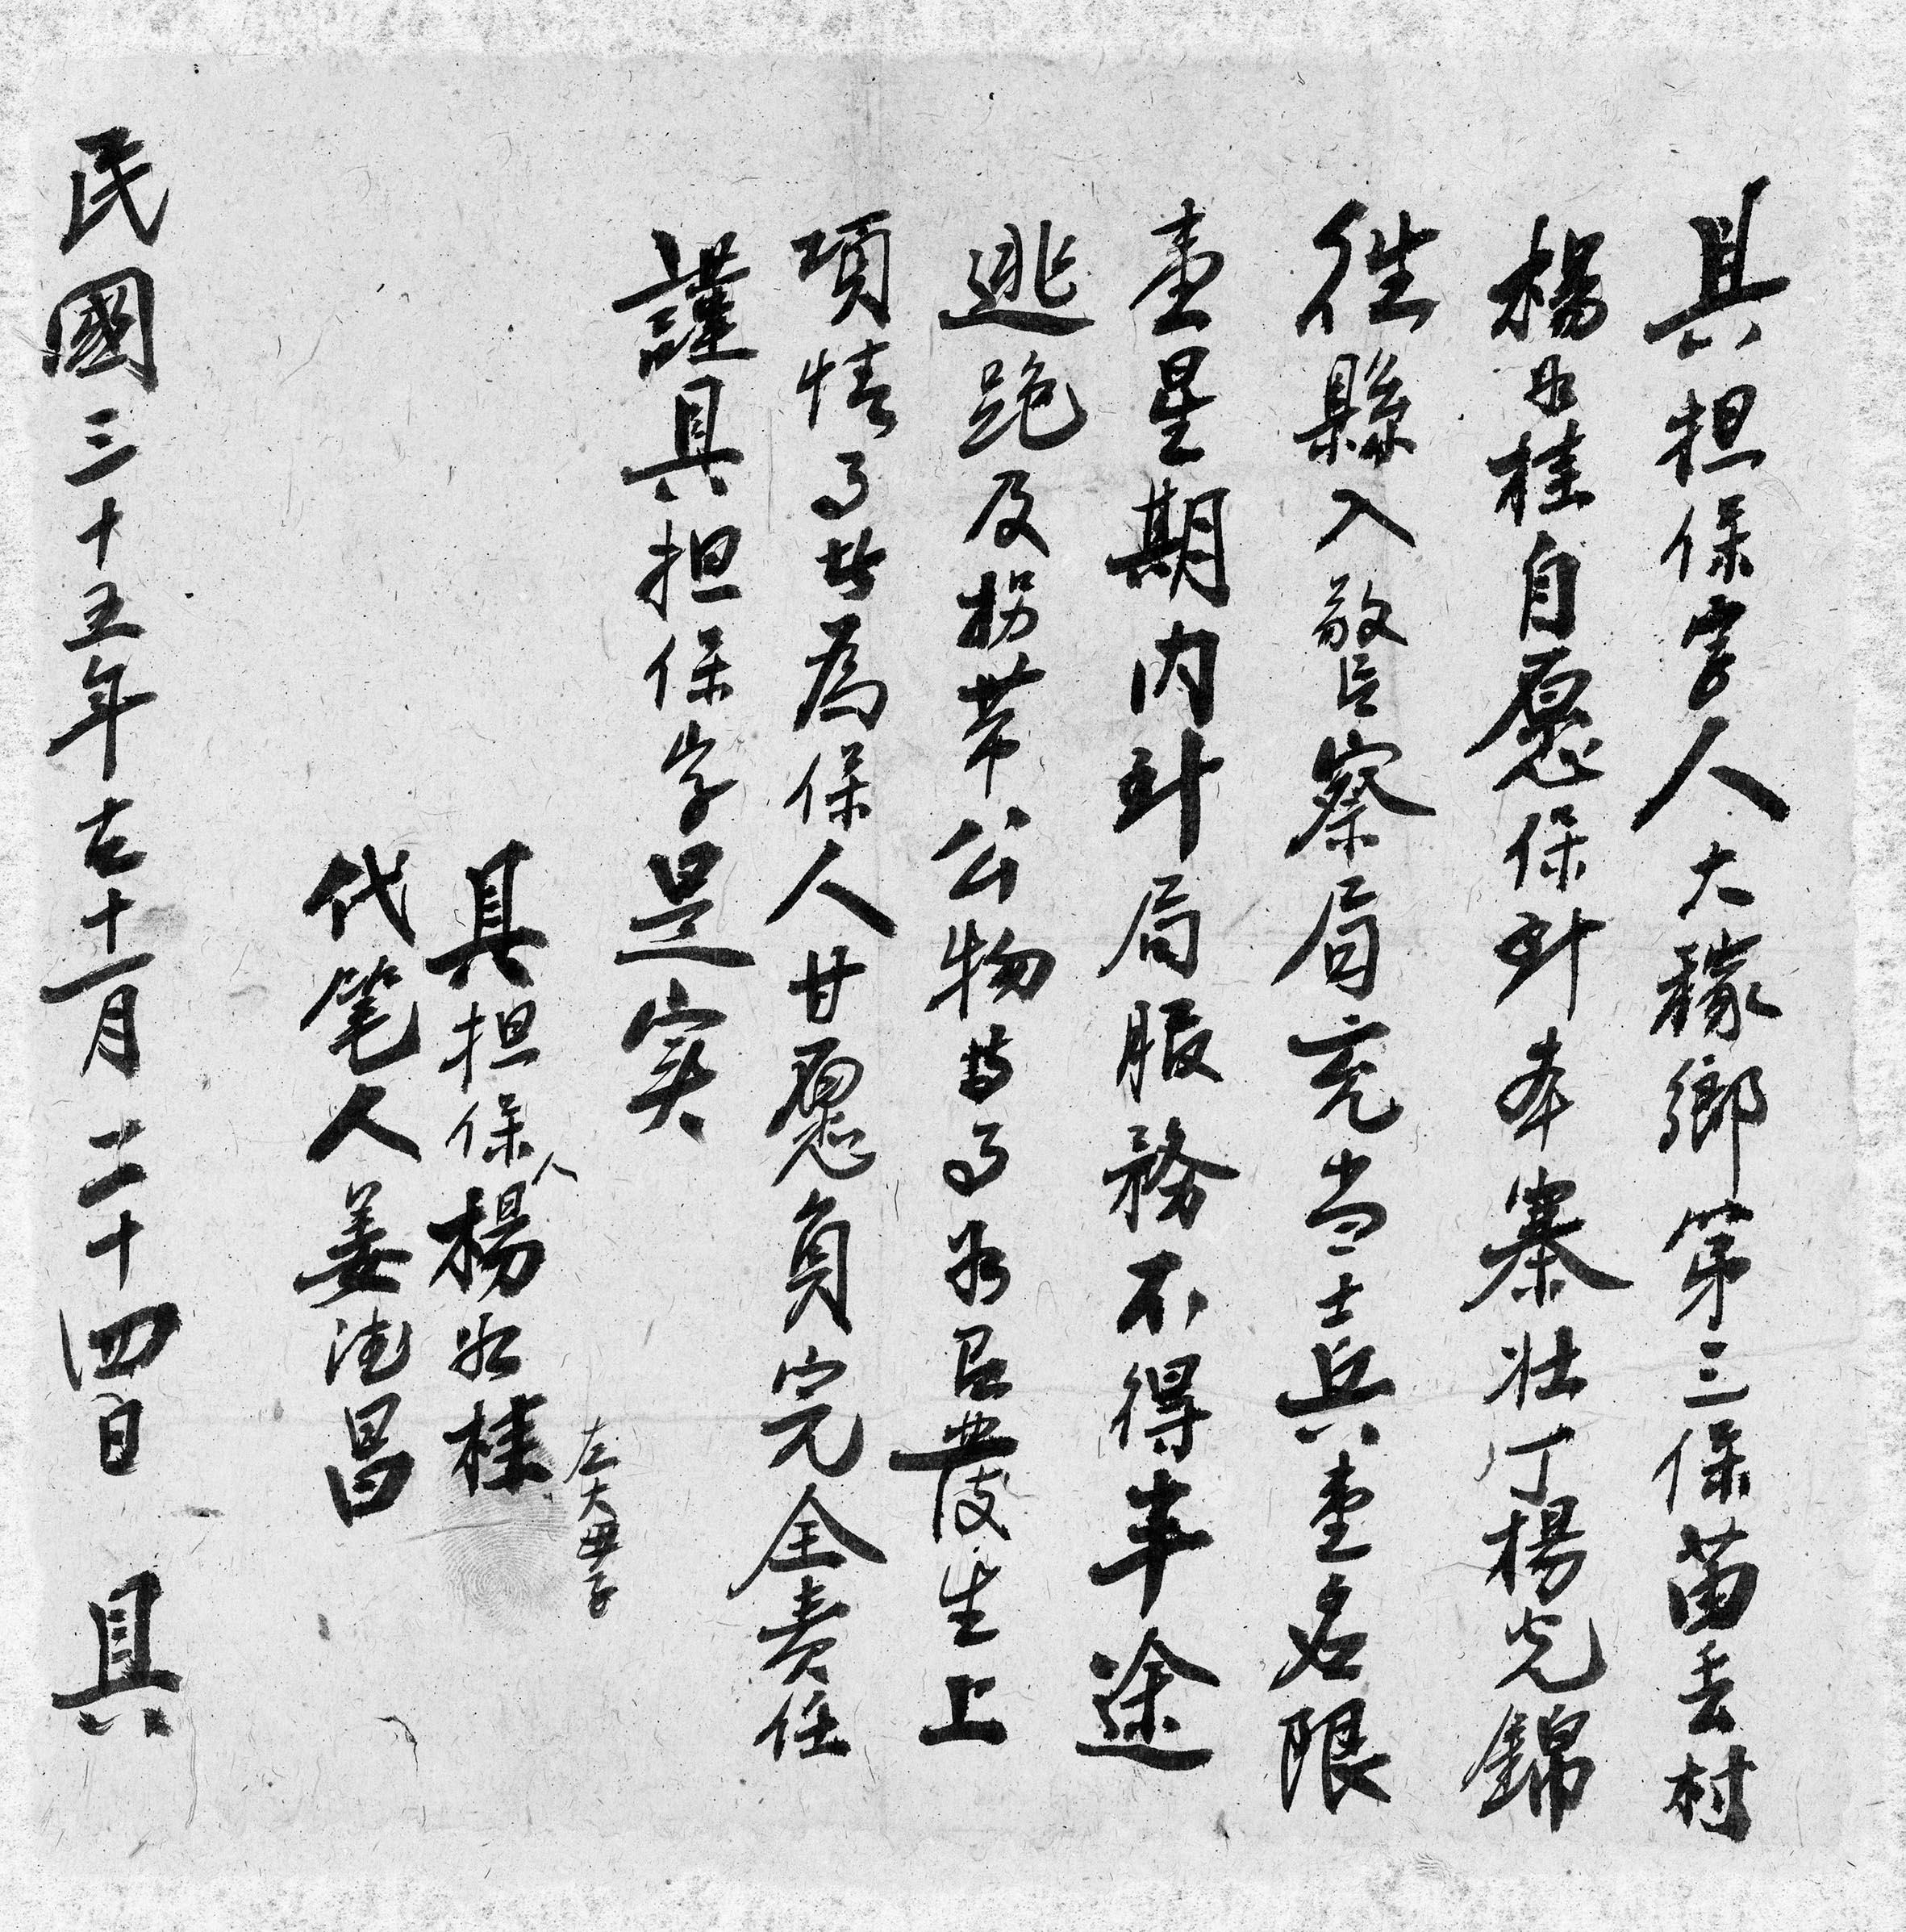 具担保字人大稼鄉第三保苗丢村
楊承桂自愿保到本寨壮丁楊光錦
往縣入警察局充当士兵壹名限
壹星期内到局服務不得半途
逃跑及拐带公物等事如有發生上
項情事為保人甘愿負完全責任
謹具担保字是实
具担保人楊承桂
左大母子
代笔人姜法昌
民國三十五年古十一月二十四日 具